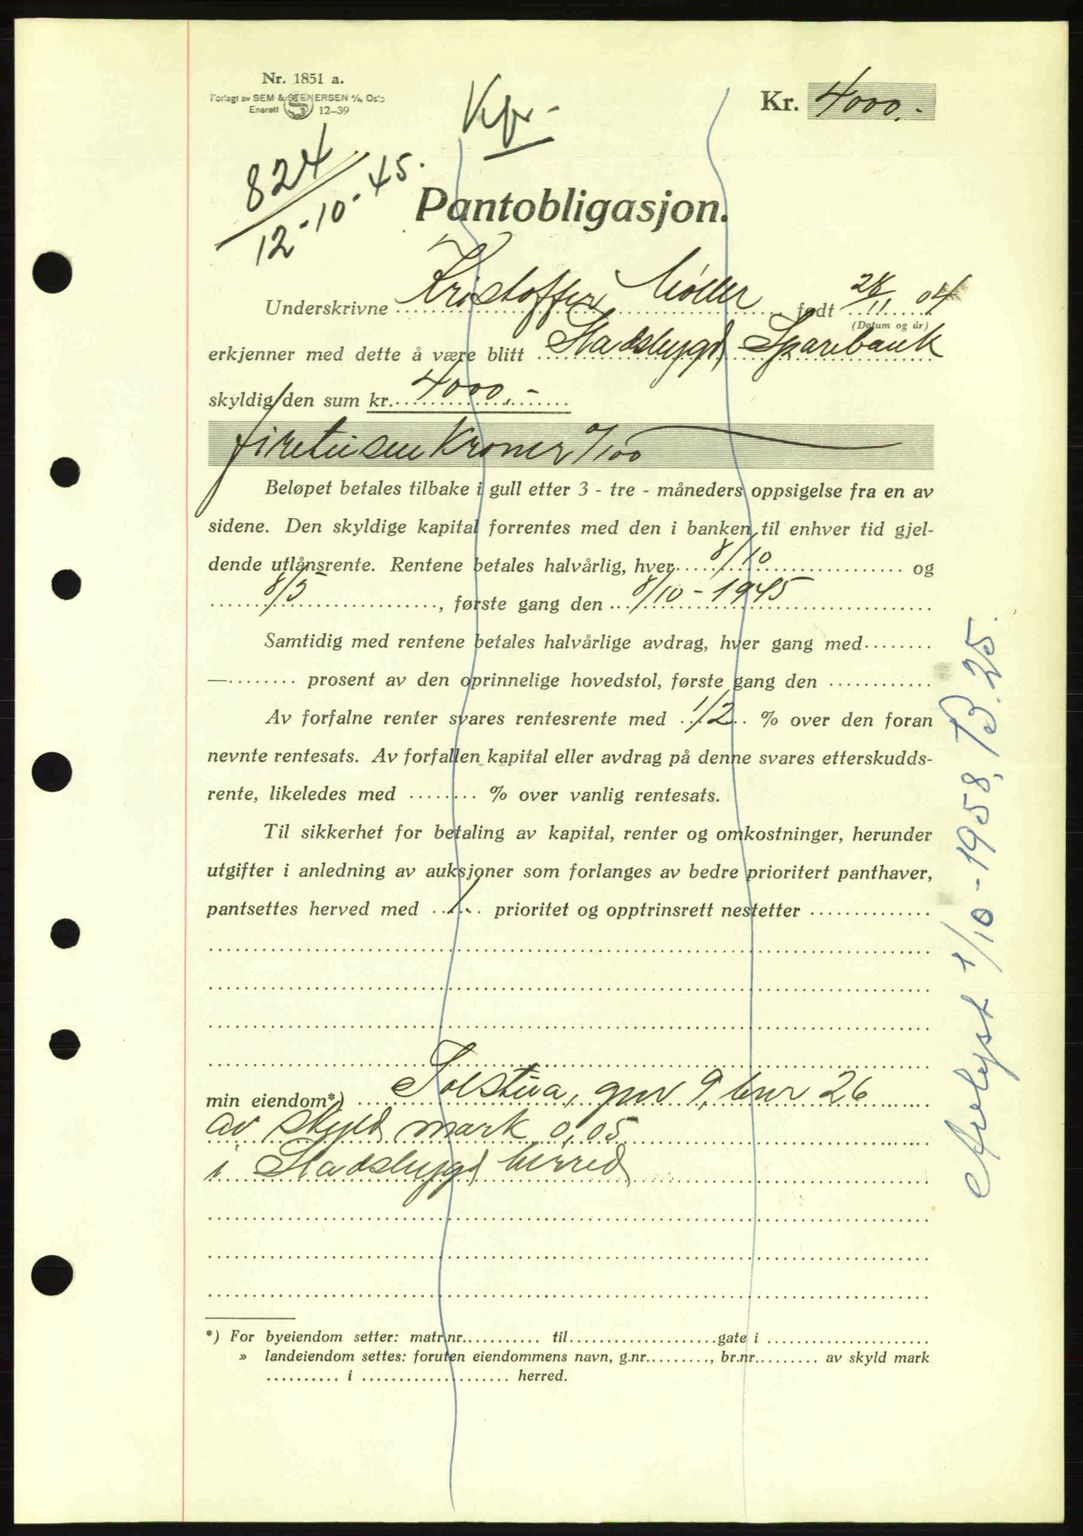 Nr. 1851 a.
Forlagt av SEM & STENERSEN A/S, Oslo
Enerett S 12—39
Kr. 4000.-
824
12-10-45.
Pantobligasjon.
Underskrivne Kristoffer Møller født 28/11 04
(Datum og år)
erkjenner med dette å være blitt Stadsbygd Sparebank
skyldig den sum kr. 4000,-
firetusen Kroner 0/100
Beløpet betales tilbake i gull etter 3 - tre - måneders oppsigelse fra en av
sidene. Den skyldige kapital forrentes med den i banken til enhver tid gjel-
dende utlånsrente. Rentene betales halvårlig, hver 8/10 og
8/5, første gang den 8/10 - 1945
Samtidig med rentene betales halvårlige avdrag, hver gang med
— prosent av den oprinnelige hovedstol, første gang den
Av forfalne renter svares rentesrente med 1/2 % over den foran
nevnte rentesats. Av forfallen kapital eller avdrag på denne svares etterskudds-
rente, likeledes med % over vanlig rentesats.
Til sikkerhet for betaling av kapital, renter og omkostninger, herunder
utgifter i anledning av auksjoner som forlanges av bedre prioritert panthaver,
pantsettes herved med 1. prioritet og opptrinsrett nestetter
min eiendom*) Solstua, gnr 9, bnr 26
av skyld mark 0,05
i Stadsbygd herred
*) For byeiendom setter: matr.nr. til gate i
» landeiendom settes: foruten eiendommens navn, g.nr., br.nr. av skyld mark
i herred.
Avlyst 1/10-1958, B. 25.